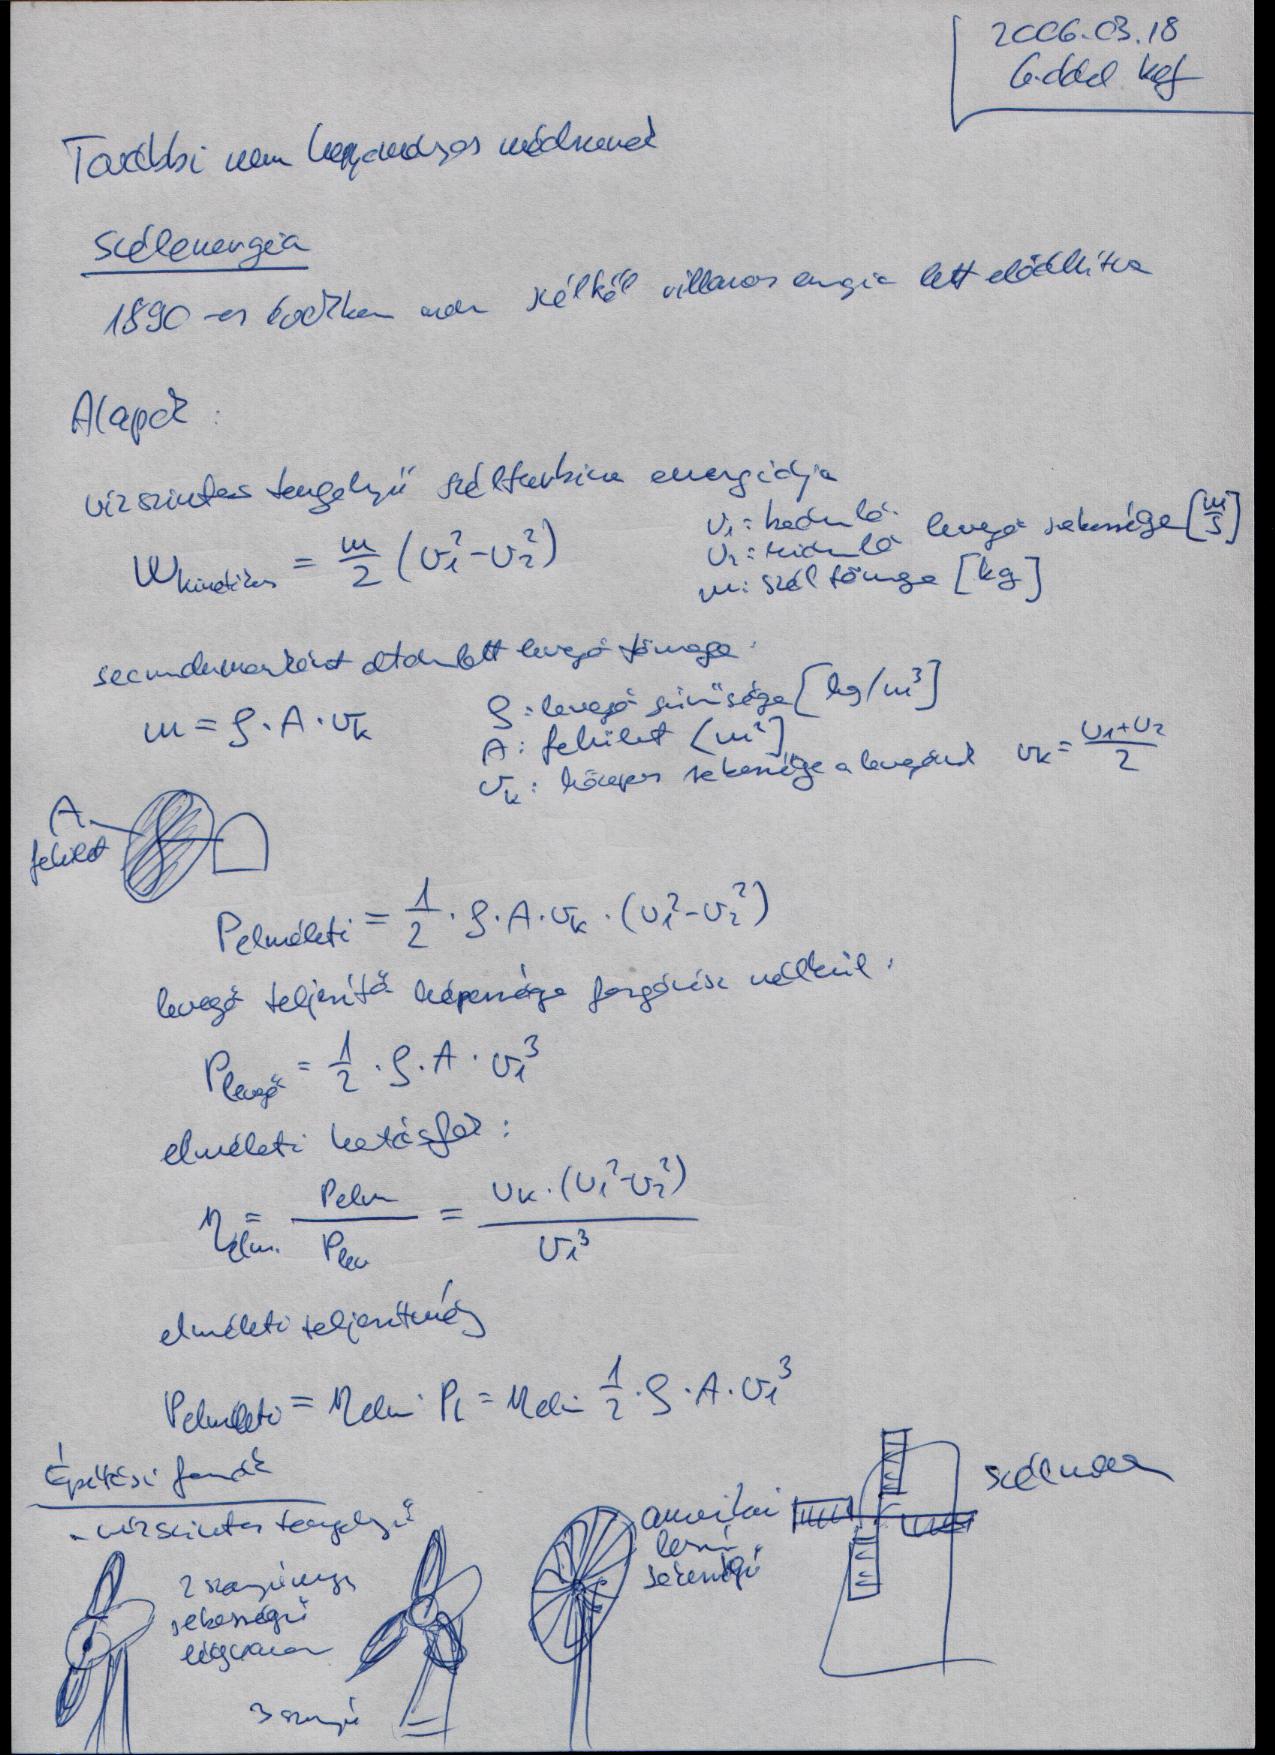 2006.03.18
6. dd kef
További nem hagyományos módszerek
Szélenergia
1890-es években már szélből villamos energia lett előállítva
Alapok:
vízszintes tengelyű szélturbina energiája
W kinetikus = m/2 (v₁² - v₂²)
v₁: beáramló
v₂: kiáramló levegő sebessége [m/s]
m: szél tömege [kg]
secundumonként átáramlott levegő tömege:
m = ρ · A · vk
ρ: levegő sűrűsége [kg/m³]
A: felület [m²]
vk: közepes sebessége a levegőnek vk = (v₁+v₂)/2
A
felület
Pelméleti = 1/2 · ρ · A · vk · (v₁² - v₂²)
levegő teljesítő képessége forgórész nélkül:
Plevegő = 1/2 · ρ · A · v₁³
elméleti hatásfok:
ηelm. = Pelm / Plev = vk · (v₁² - v₂²) / v₁³
elméleti teljesítmény
Pelméleti = ηelm · PL = ηelm · 1/2 · ρ · A · v₁³
Építési formák
- vízszintes tengelyű
2 szárnyú nagy
sebességű
3 szárnyú
amerikai
lassú
sebességű
szélmalom